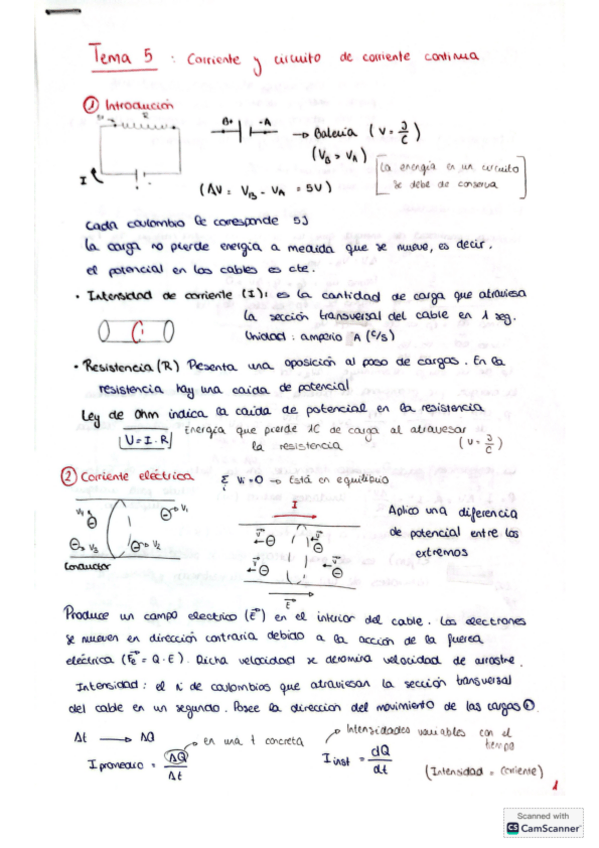 Tema 5 : Corriente y circuito de corriente continua
① Introducción
R
I
B+ -A → Batería (V = J/C)
(VB > VA)
(ΔV = VB - VA = 5V)
La energía en un circuito
se debe de conserva
Cada coulombio le corresponde 5J
La carga no pierde energía a medida que se mueve, es decir,
el potencial en los cables es cte.
• Intensidad de corriente (I): es la cantidad de carga que atraviesa
la sección transversal del cable en 1 seg.
Unidad: amperio A (C/s)
• Resistencia (R) Presenta una oposición al paso de cargas. En la
resistencia hay una caida de potencial
Ley de Ohm indica la caida de potencial en la resistencia
V = I · R
Energía que pierde 1C de carga al atravesar
la resistencia
(V = J/C)
② Corriente eléctrica
Σi Vi = 0 → Está en equilibrio
V4 V1
V3 V2
Conductor
I
V V
V V
E
Aplico una diferencia
de potencial entre los
extremos
Produce un campo electrico (E) en el interior del cable. Los electrones
se mueven en dirección contraria debido a la acción de la fuerza
eléctrica (Fe = Q · E). Dicha velocidad se denomina velocidad de arrastre.
Intensidad: el nº de coulombios que atraviesan la sección transversal
del cable en un segundo. Posee la direccion del movimiento de las cargas ⊕.
Δt → ΔQ
I promedio = ΔQ/Δt
en una t concreta
I inst = dQ/dt
Intensidades variables con el
tiempo
(Intensidad = corriente)
1
Scanned with
CS CamScanner